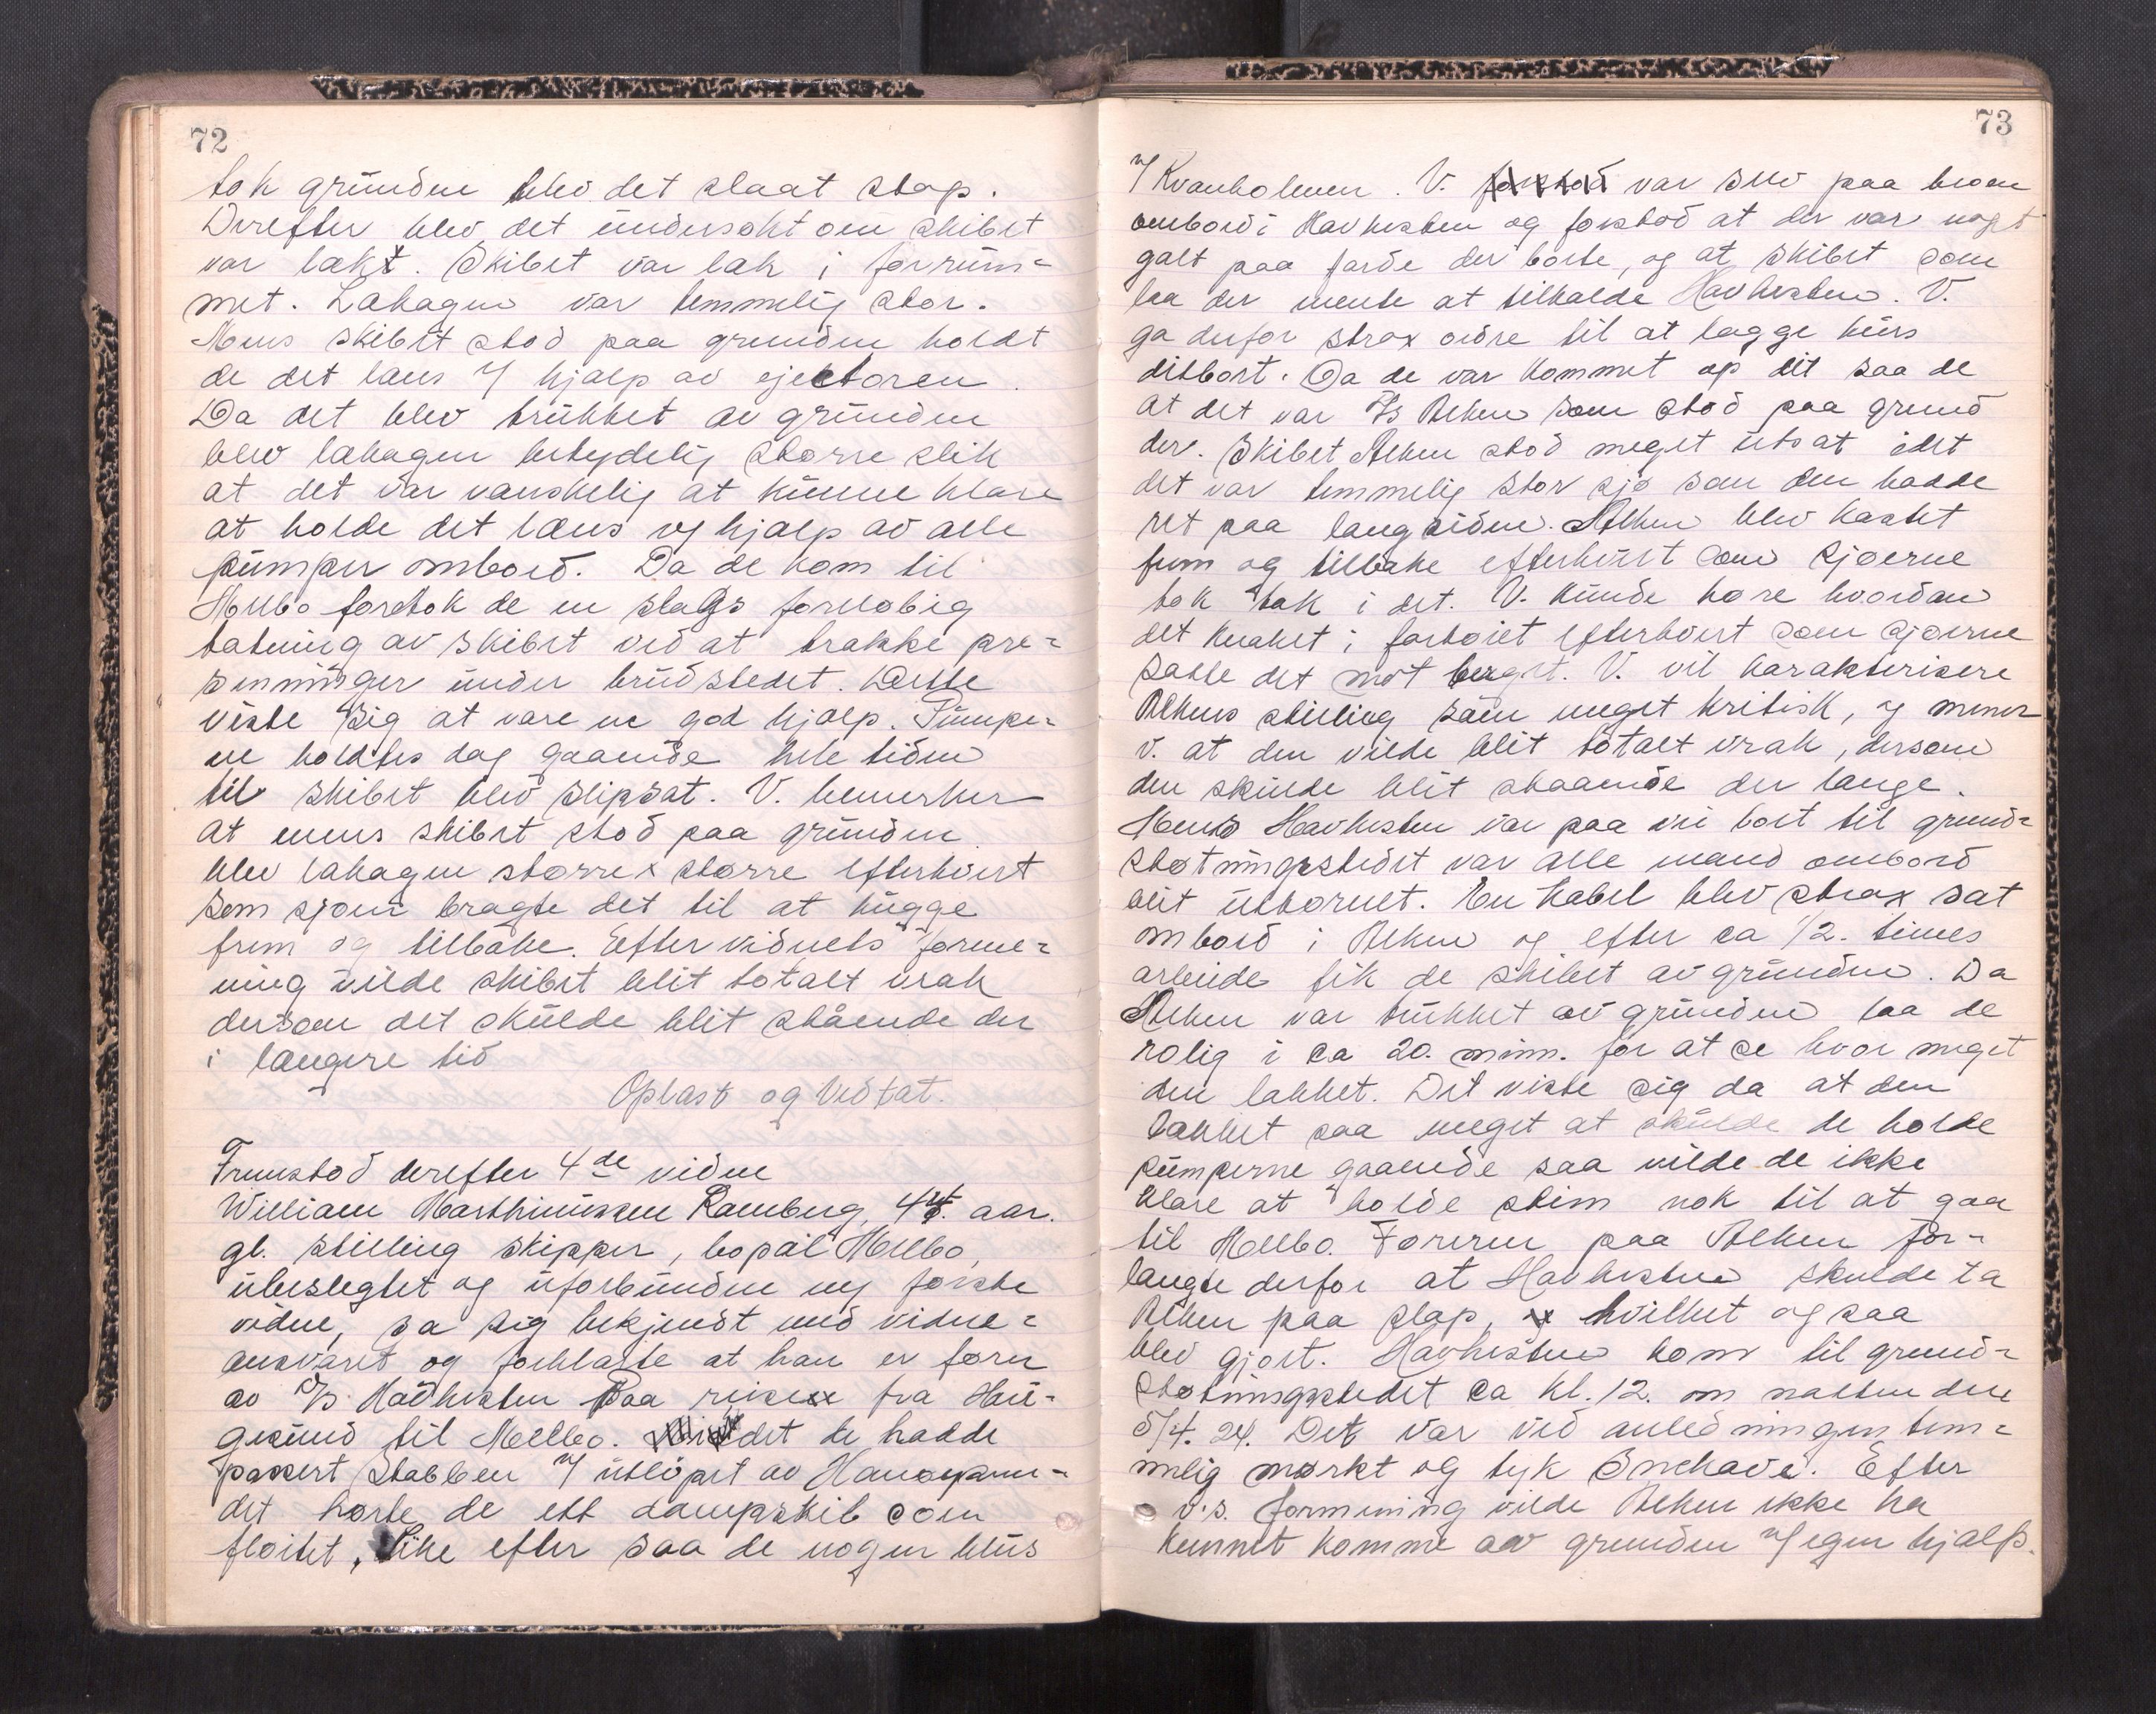 72
tok grunden blev det slaat stop.
Derefter blev det undersøkt om skibet
var lækt. Skibet var læk i forrum-
met. Lækagen var temmelig stor.
Mens skibet stod paa grunden holdt
de det læns v/ hjælp av ejektoren.
Da det blev trukket av grunden
blev lækagen betydelig større slik
at det var vanskelig at kunne klare
at holde det læns v/ hjælp av alle
pumper ombord. Da de kom til
Melbo foretok de en slags foreløbig
tætning av skibet ved at trække pre-
senninger under brudstedet. Dette
viste sig at være en god hjælp. Pumpe-
ne holdtes dog gaaende hele tiden
til skibet blev slipsat. V. bemerker
at mens skibet stod paa grunden
blev lækagen større x større efterhvert
som sjøen bragte det til at hugge
frem og tilbake. Efter vidnets forme-
ning vilde skibet blit totalt vrak
dersom det skulde blit stående der
i længere tid
Oplæst og vedtat.
Fremstod derefter 4de vidne
William Marthinussen Ramberg, 44. aar.
gl. stilling skipper, bopæl Melbo,
ubeslegtet og uforbunden mg første
vidne, sa sig bekjendt med vidne-
ansvaret og forklarte at han er fører
av D/S Havhesten Paa reisen fra Hau-
gesund til Melbo. det de hadde
passert Stabben v/ utløpet av
det hørte de ett dampskib som
fløitet, like efter saa de nogen blus
73
v/ Kvanholmen. V. forstod var selv paa broen
ombord i Havhesten og forstod at der var noget
galt paa færde der borte, og at skibet som
laa der mente at tilkalde Havhesten. V.
ga derfor strax ordre til at lægge kurs
ditbort. Da de var kommet op dit saa de
at det var D/S Alken som stod paa grund
der. Skibet Alken stod meget utsat idet
det var temmelig stor sjø som den hadde
ret paa langsiden. Alken blev kastet
frem og tilbake efterhvert som sjøerne
tok tak i det. V. kunde høre hvordan
det knaket i fartøiet efterhvert som sjøerne
satte det mot berget. V. vil karakterisere
Alkens stilling som meget kritisk, og mener
v. at den vilde blit totalt vrak, dersom
den skulde blit staaende der længe.
Mens Havhesten var paa vei bort til grund-
støtningsstedet var alle mand ombord
blit uttørnet. En kabel blev strax sat
ombord i Alken og efter ca 1/2. times
arbeide fik de skibet av grunden. Da
Alken var trukket av grunden laa de
rolig i ca 20. minn. for at se hvor meget
den lækket. Det viste sig da at den
lækket saa meget at skulde de holde
pumperne gaaende saa vilde de ikke
klare at holde stim nok til at gaa
til Melbo. Føreren paa Alken for-
langte derfor at Havhesten skulde ta
Alken paa slæp, hvilket og saa
blev gjort. Havhesten kom til grund-
støtningsstedet ca kl. 12. om natten den
5/4. 24. Det var ved anledningen tem-
melig mørkt og tyk Snekave. Efter
v.s. formening vilde Alken ikke ha
kunnet komme av grunden v/ egen hjælp.